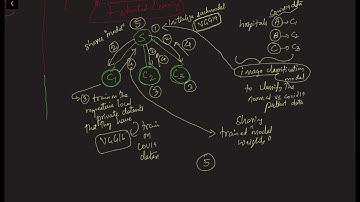 Federated Learning
shares "model"
5
S
1
initialize such model
VGG19
C1
C2
C3
3
3
3
3 train on the
respective local
private datasets
that they have
VGG16
train
on
covid19
dataset
hospitals
A → C1
B → C2
C → C3
image classification
model
to classify the
normal vs covid19
patient data
sharing
trained model
weights"
5